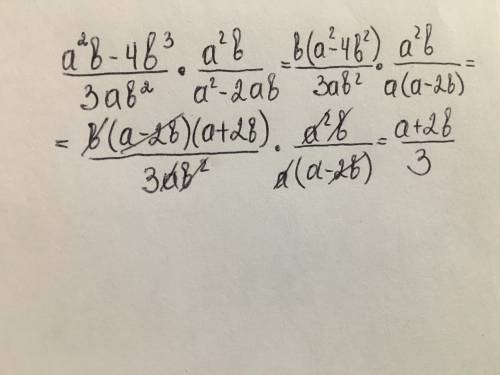 (a²b - 4b³)/(3ab²) · (a²b)/(a² - 2ab) = (b(a² - 4b²))/(3ab²) · (a²b)/(a(a - 2b)) =
= (b(a - 2b)(a + 2b))/(3ab²) · (a²b)/(a(a - 2b)) = (a + 2b)/3